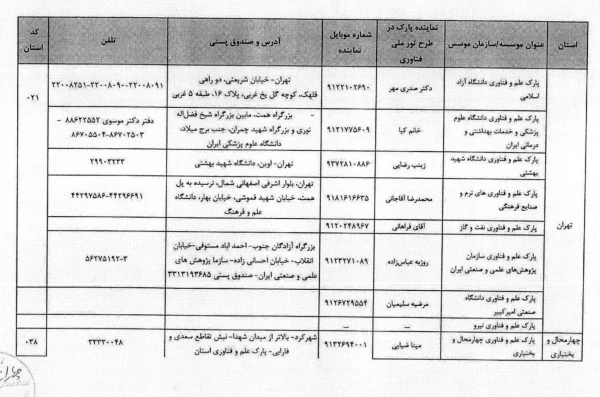 استان
عنوان موسسه/سازمان موسس
نماینده پارک در
طرح تور ملی
فناوری
شماره موبایل
نماینده
آدرس و صندوق پستی
تلفن
کد
استان
تهران
پارک علم و فناوری دانشگاه آزاد
اسلامی
دکتر صدری مهر
۹۱۲۲۱۰۲۶۹۰
تهران- خیابان شریعتی، دو راهی
قلهک، کوچه گل یخ غربی، پلاک ۱۶، طبقه ۵ غربی
۲۲۰۰۸۲۵۱-۲۲۰۰۸۰۹۰-۲۲۰۰۸۰۹۱
۰۲۱
پارک علم و فناوری دانشگاه علوم
پزشکی و خدمات بهداشتی و
درمانی ایران
خانم کیا
۹۱۲۱۷۷۵۶۰۹
- بزرگراه همت، مابین بزرگراه شیخ فضل‌اله
نوری و بزرگراه شهید چمران، جنب برج میلاد،
دانشگاه علوم پزشکی ایران
دفتر دکتر موسوی ۸۸۶۲۲۵۵۲ -
۸۶۷۰۵۵۰۴-۸۶۷۰۲۵۰۳
پارک علم و فناوری دانشگاه شهید
بهشتی
زینب رضایی
۹۳۷۲۸۱۰۸۸۶
تهران- اوین، دانشگاه شهید بهشتی
۲۹۹۰۳۲۳۳
پارک علم و فناوری های نرم و
صنایع فرهنگی
محمدرضا آقاجانی
۹۱۸۱۶۱۶۶۳۵
تهران، بلوار اشرفی اصفهانی شمال، نرسیده به پل
همت، خیابان شهید قموشی، خیابان بهار، دانشگاه
علم و فرهنگ
۴۴۲۹۷۵۸۶-۴۴۲۹۶۶۹۱
پارک علم و فناوری نفت و گاز
آقای فراهانی
۹۱۲۰۲۴۸۹۶۷
پارک علم و فناوری سازمان
پژوهش‌های علمی و صنعتی ایران
روزبه عباس‌زاده
۹۱۲۳۲۷۱۰۸۹
بزرگراه آزادگان جنوب- احمد اباد مستوفی-خیابان
انقلاب- خیابان احسانی زاده- سازما پژوهش های
علمی و صنعتی ایران- صندوق پستی ۳۳۱۳۱۹۳۶۸۵
۵۶۲۷۵۱۹۲-۳
پارک علم و فناوری دانشگاه
صنعتی امیرکبیر
مرضیه سلیمیان
۹۱۲۶۷۲۹۵۵۴
پارک علم و فناوری نیرو
—
—
چهارمحال و
بختیاری
پارک علم و فناوری چهارمحال و
بختیاری
مینا ضیایی
۹۱۳۲۶۹۴۰۰۱
شهرکرد- بالاتر از میدان شهدا- نبش تقاطع سعدی و
فارابی- پارک علم و فناوری استان
۳۲۳۲۰۰۴۸
۰۳۸